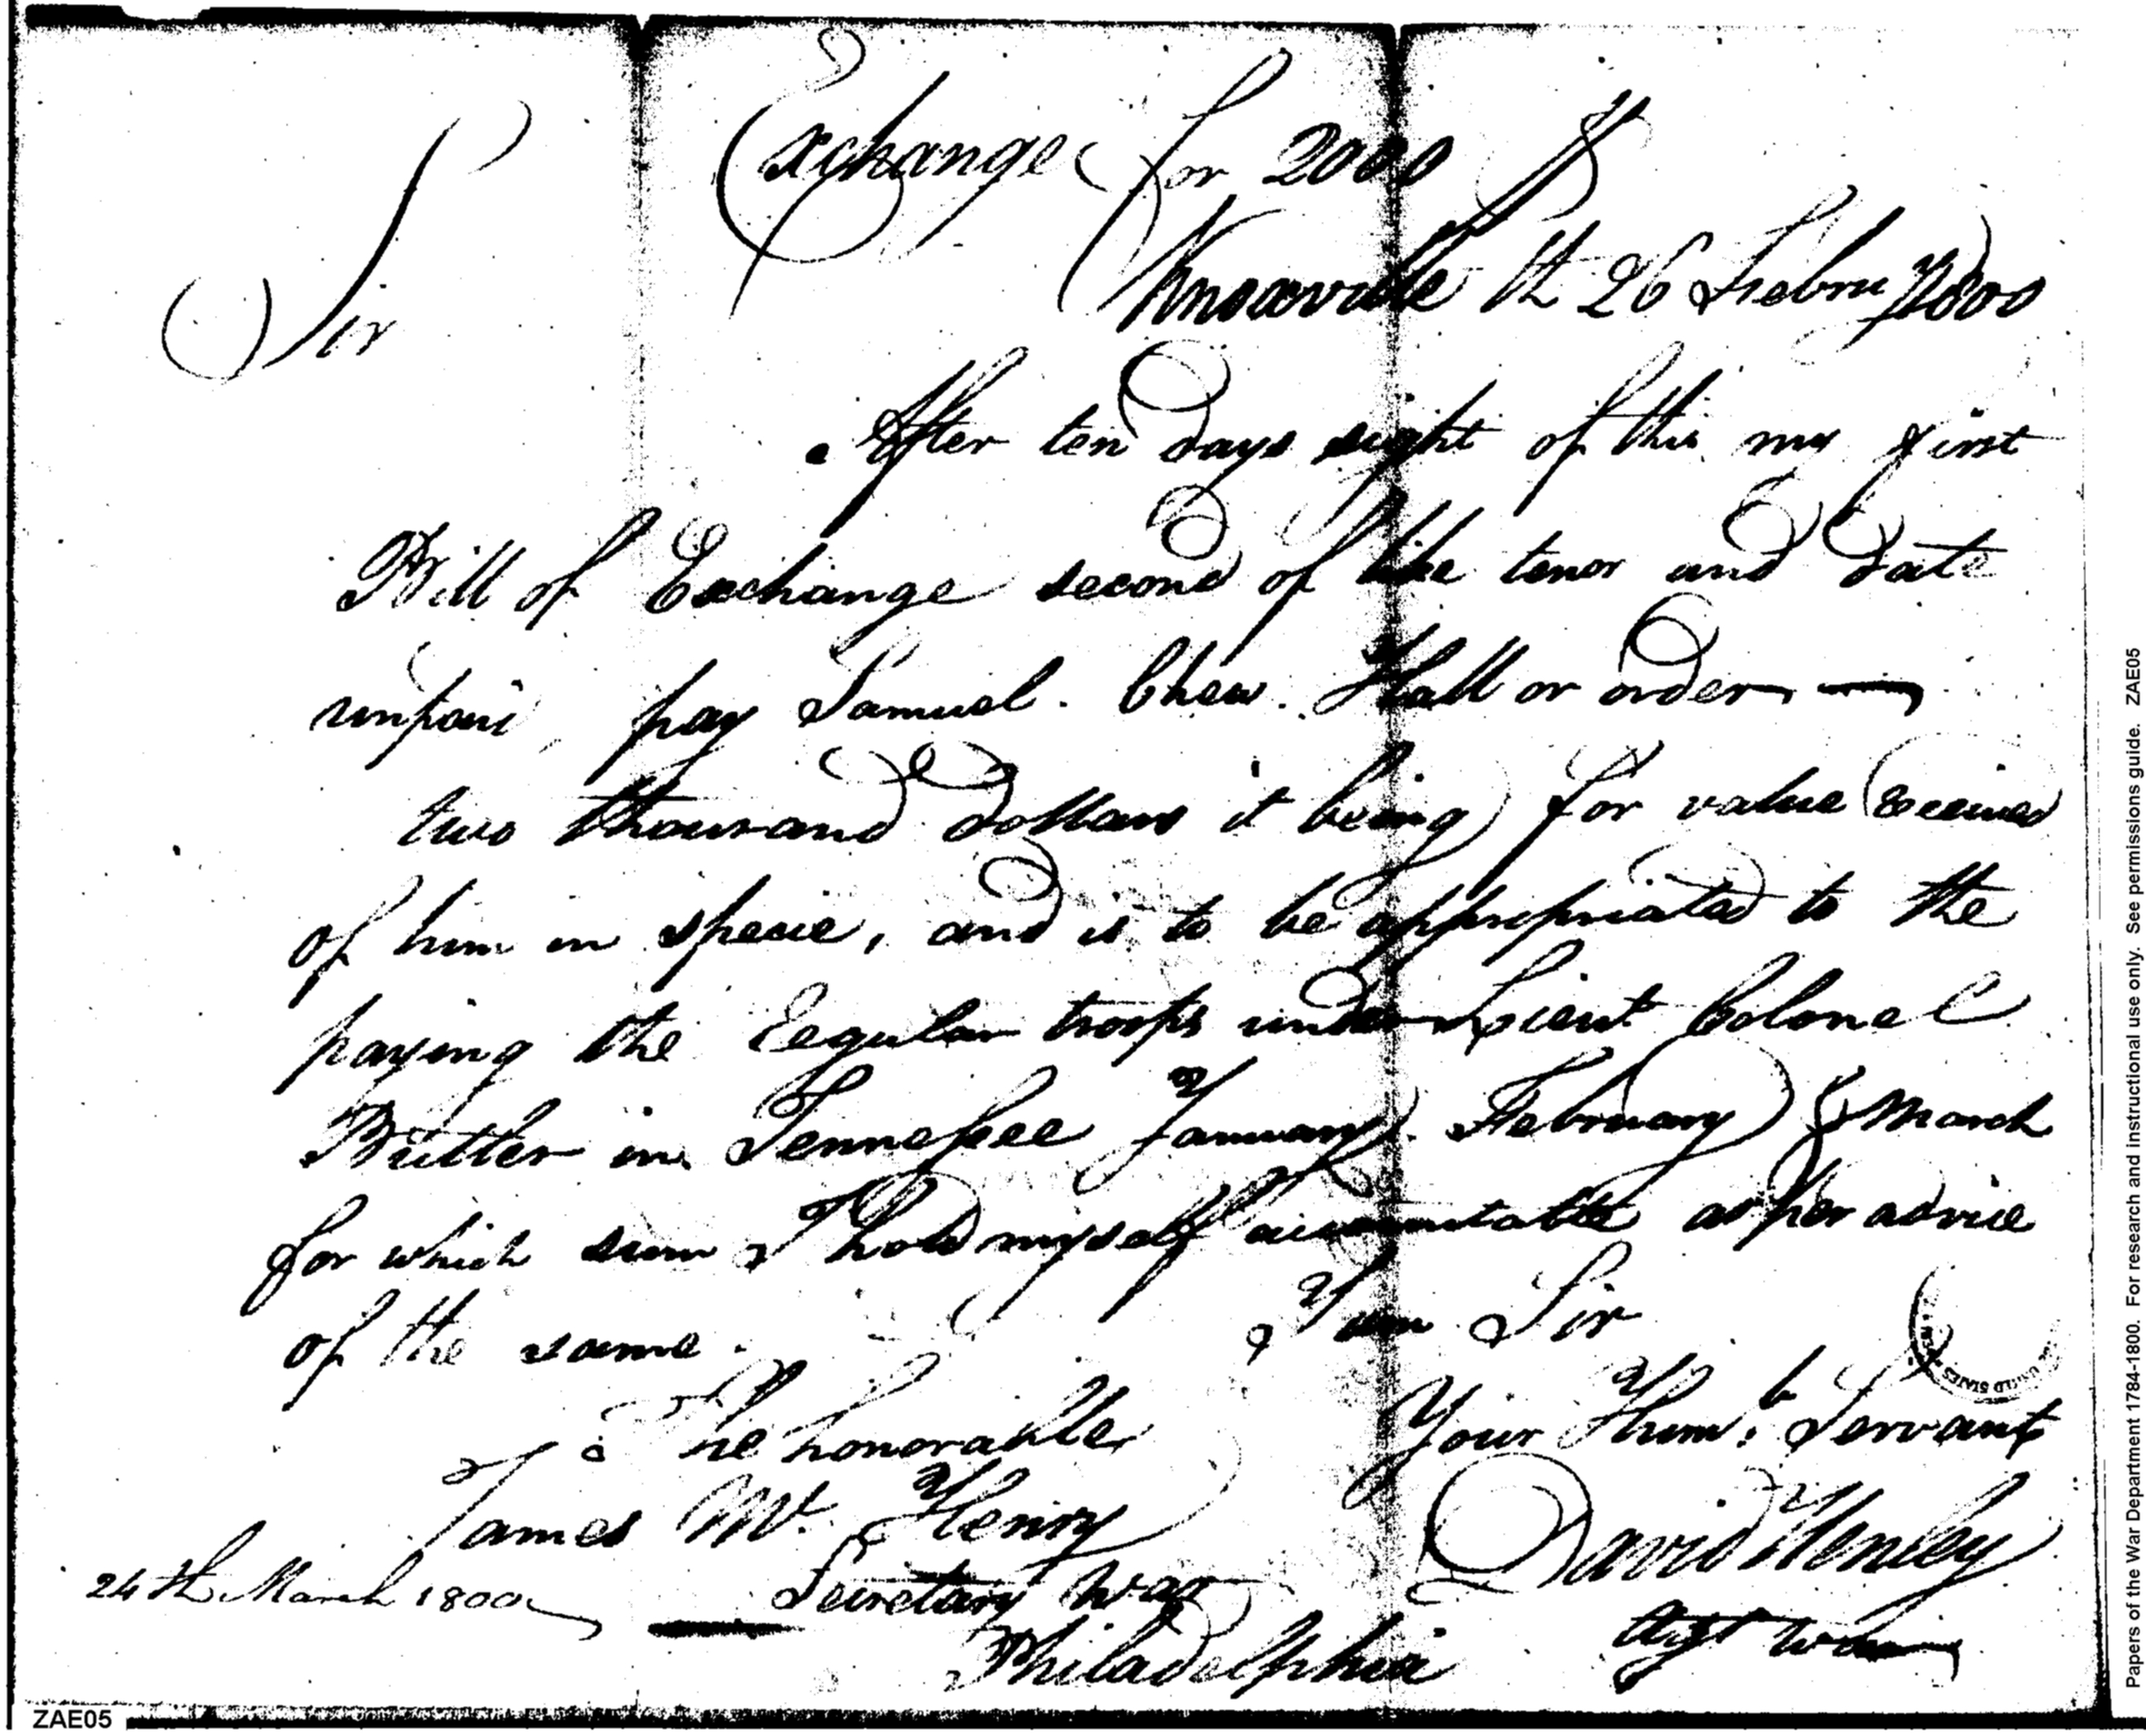 Exchange for 2000 $
Knoxville the 26 Febru 1800
Sir
After ten days sight of this my first
Bill of Exchange second of like tenor and date
unpaid, pay Samuel. Chew. Hall or order
two thousand dollars it being for value received
of him in specie, and is to be appropriated to the
paying the Regular troops under Lieut Colonel
Butler in Tennessee January. February & March
for which sum I hold myself accountable as per advice
of the same.
I am Sir
The honorable
Your Hum: b Servant
James Mc. Henry
David Henley
24th March 1800
Secretary War
Agt War
Philadelphia
UNITED STATES
ZAE05
Papers of the War Department 1784-1800. For research and instructional use only. See permissions guide. ZAE05